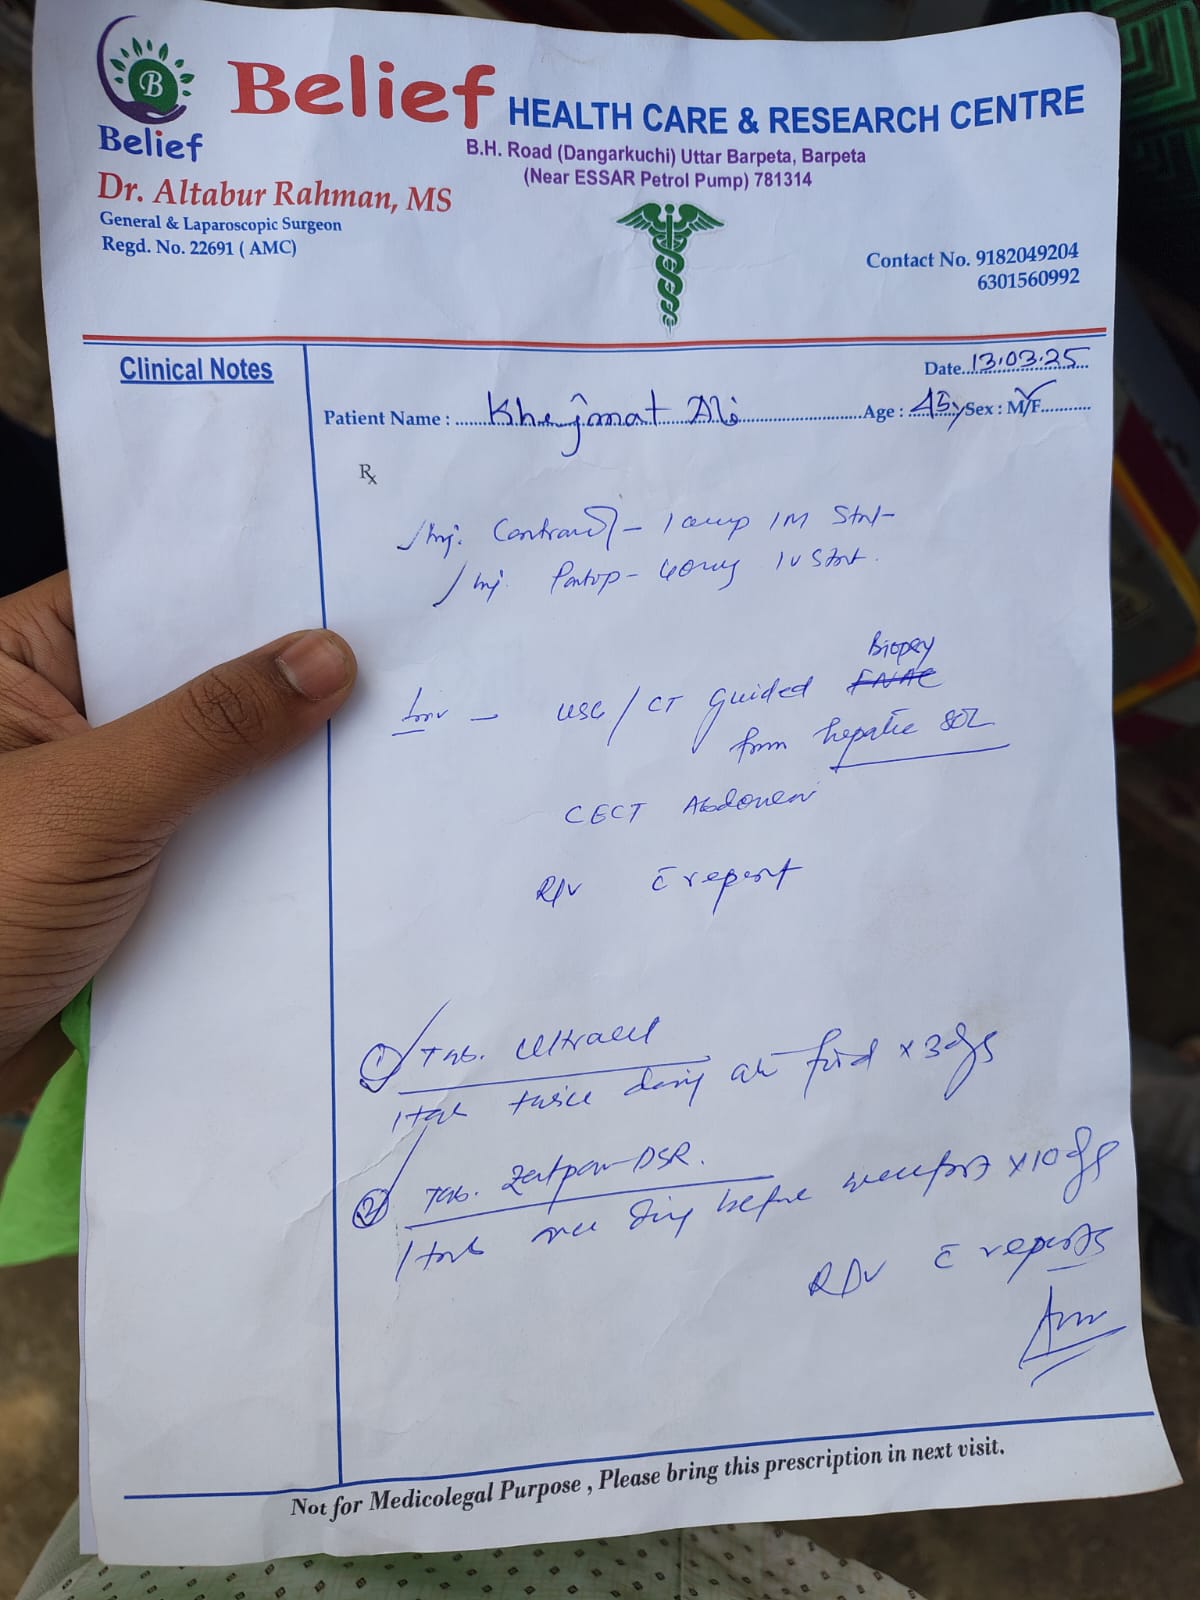 B
Belief
Belief HEALTH CARE & RESEARCH CENTRE
B.H. Road (Dangarkuchi) Uttar Barpeta, Barpeta
(Near ESSAR Petrol Pump) 781314
Dr. Altabur Rahman, MS
General & Laparoscopic Surgeon
Regd. No. 22691 ( AMC)
Contact No. 9182049204
6301560992
Clinical Notes
Date 13.03.25
Patient Name : Ali Age : 45y Sex : M/F
Rx
Inj. - 1 amp IM Stat
Inj. Pantop - 40mg IV Stat.
Inv - USG / CT guided FNAC Biopsy
from hepatic SOL
CECT Abdomen
R/v c̄ report
① Tab. Ultracet
1 tab twice daily food x 3 dys
② Tab. -DSR.
1 tab once daily before x 10 dys
R/v c̄ reports
Not for Medicolegal Purpose , Please bring this prescription in next visit.